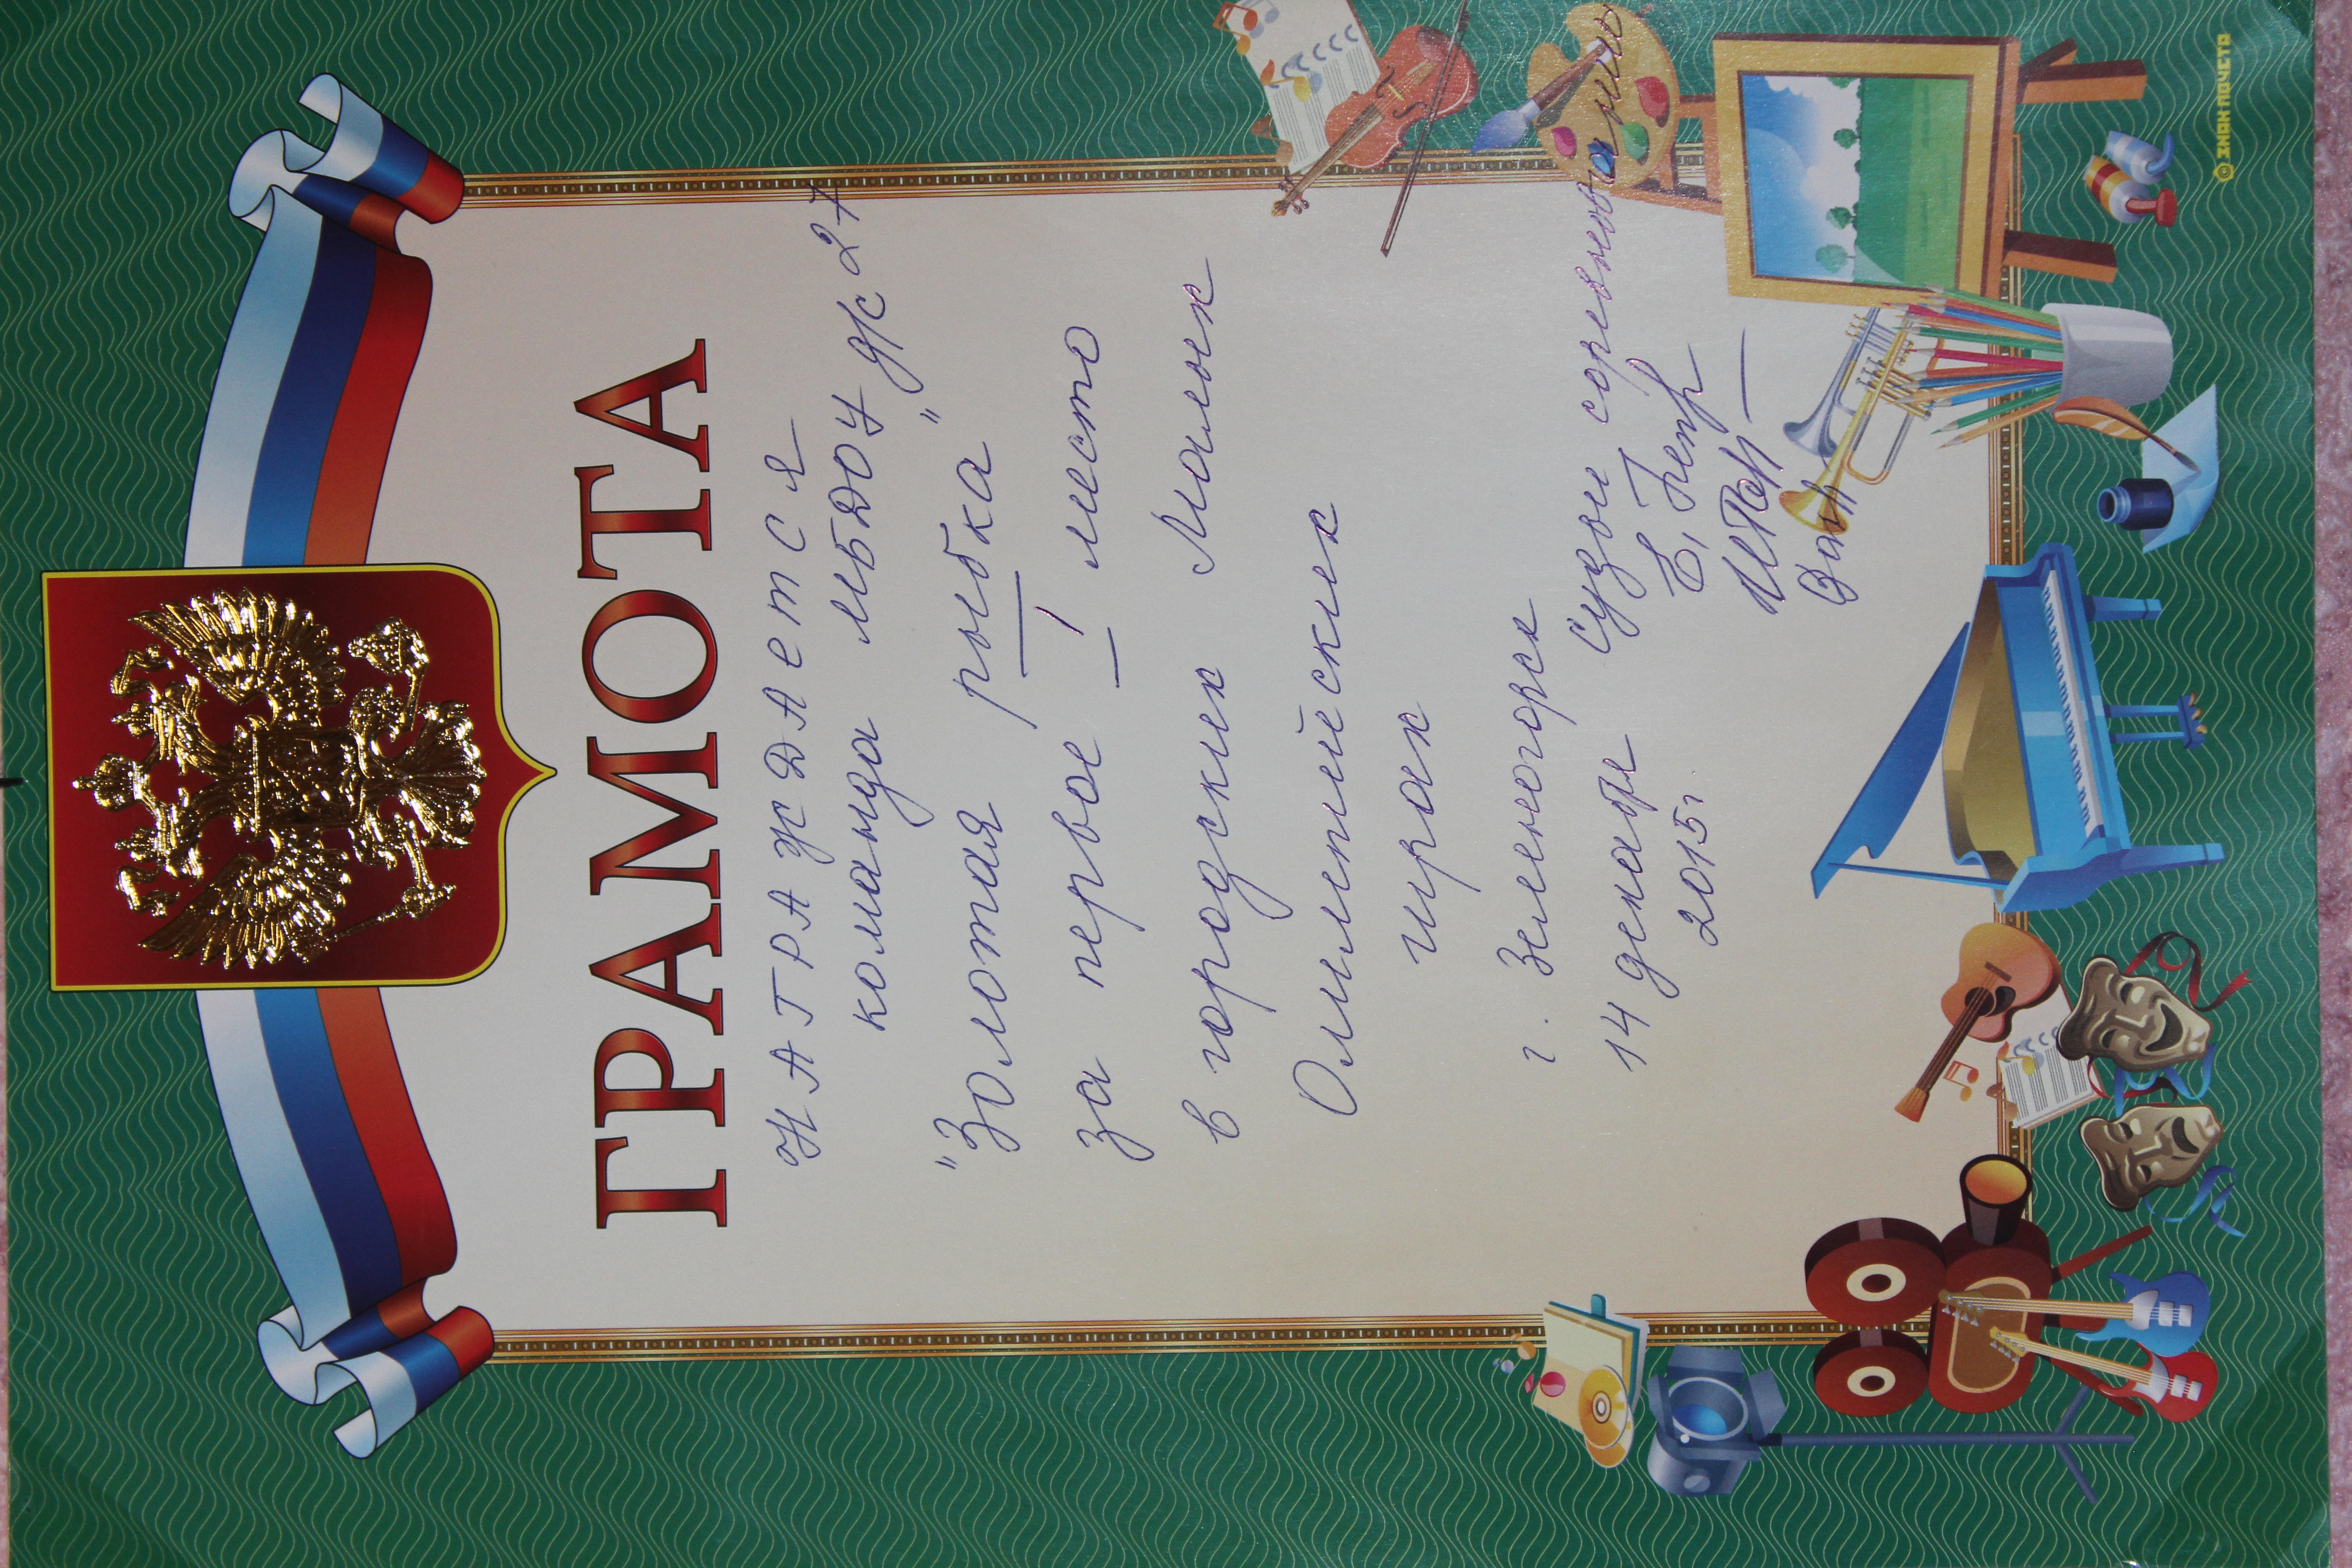 ГРАМОТА
НАГРАЖДАЕТСЯ
команда МБДОУ д/с 27
"Золотая рыбка"
за первое I место
в городских Малых
Олимпийских
играх
г. Зеленогорск
14 декабря
2015г.
Судьи соревнований
© ЗНАК ПОЧЕТА